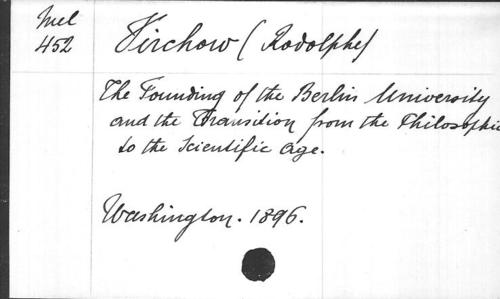 Mel
452
Virchow (Rodolphe)
The Founding of the Berlin University
and the Transition from the Philosophic
to the Scientific Age.
Washington. 1896.